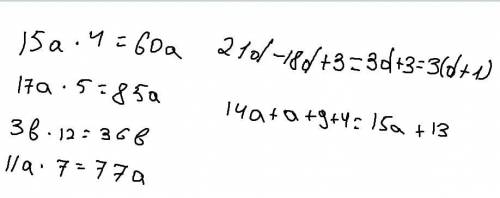 15a · 4 = 60a
17a · 5 = 85a
3в · 12 = 36в
11a · 7 = 77a
21d - 18d + 3 = 3d + 3 = 3(d + 1)
14a + a + 9 + 4 = 15a + 13